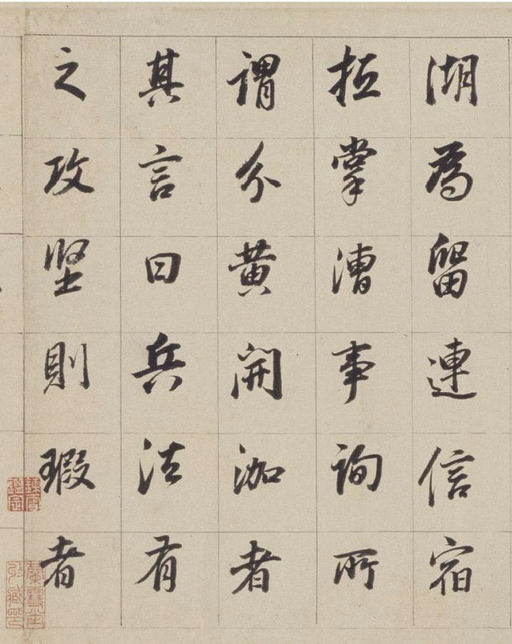 湖為留連信宿
抵掌漕事詢所
謂分黄開泇者
其言曰兵法有
之攻坚則瑕者